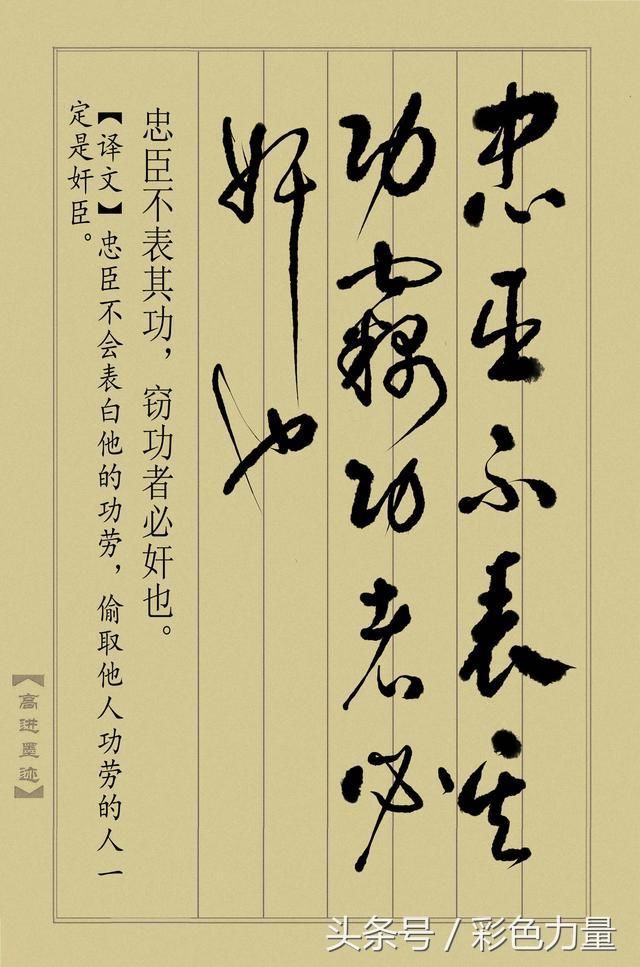 忠臣不表其
功窃功者必
奸也
忠臣不表其功，窃功者必奸也。
【译文】忠臣不会表白他的功劳，偷取他人功劳的人一
定是奸臣。
【高进墨迹】
头条号／彩色力量